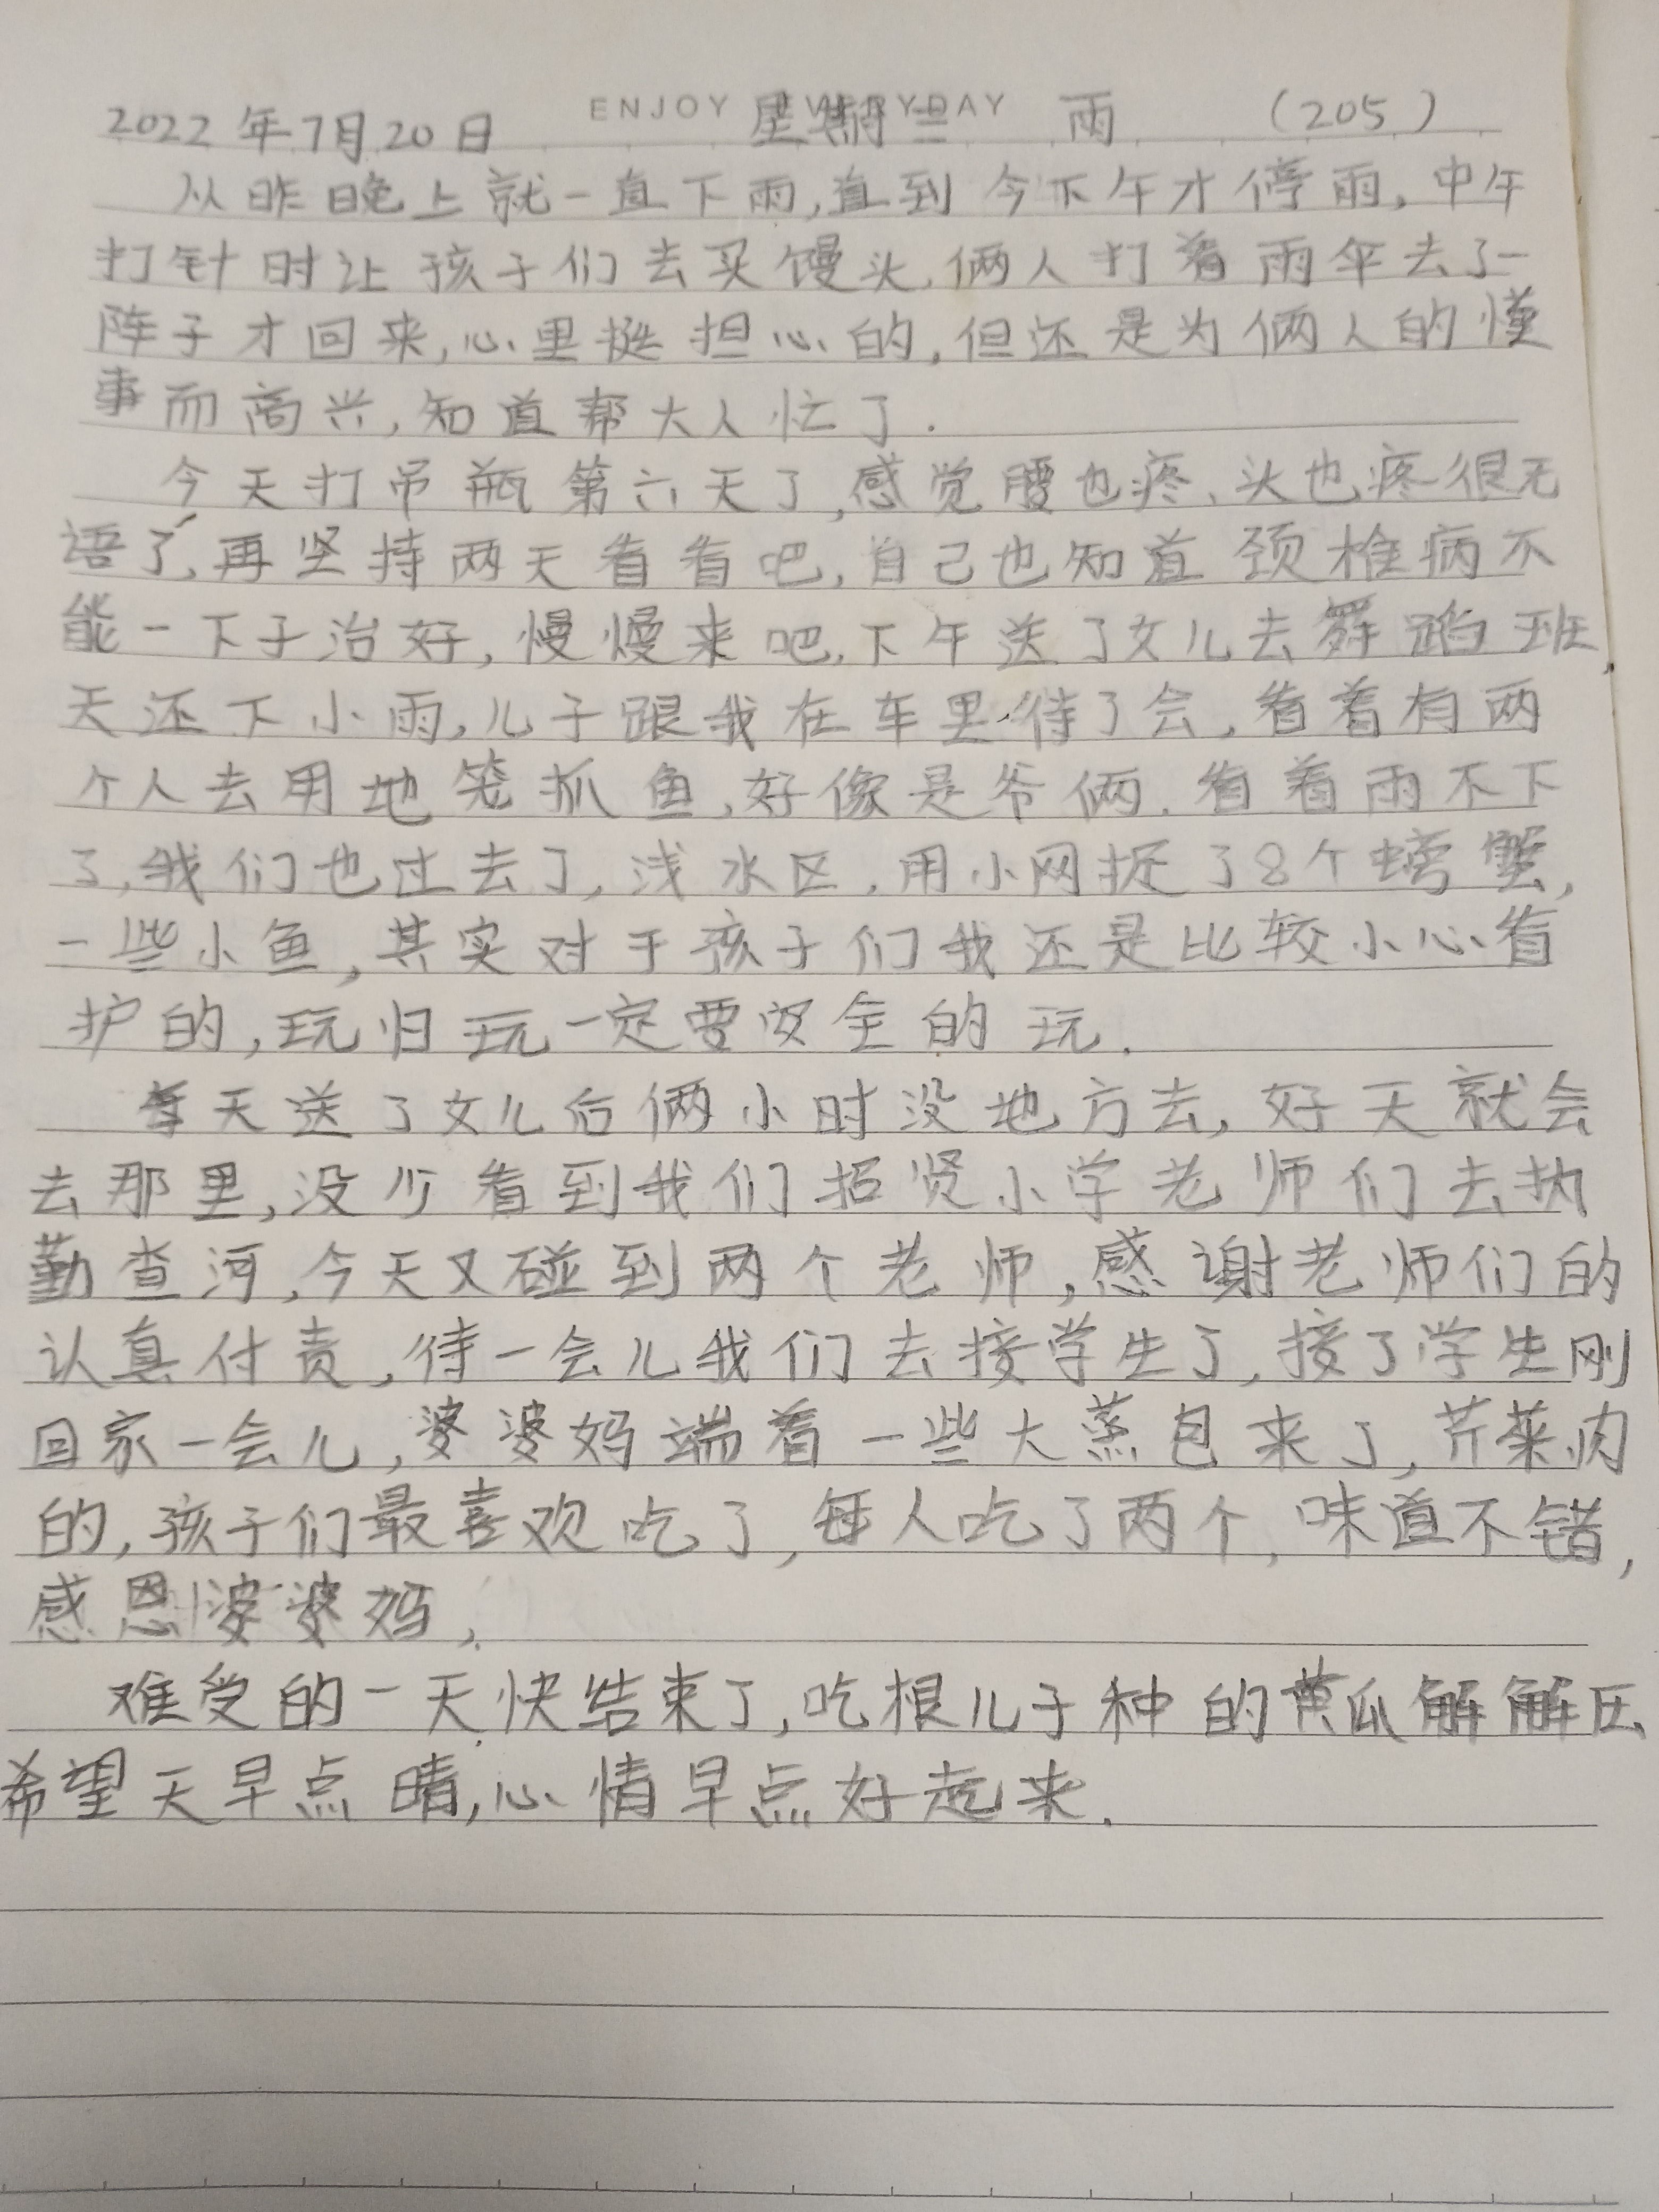 ENJOY EVERYDAY
2022年7月20日 星期三 雨 (205)
从昨晚上就一直下雨,直到今下午才停雨,中午
打针时让孩子们去买馒头,俩人打着雨伞去了一
阵子才回来,心里挺担心的,但还是为俩人的懂
事而高兴,知道帮大人忙了.
今天打吊瓶第六天了,感觉腰也疼、头也疼很无
语了,再坚持两天看看吧,自己也知道颈椎病不
能一下子治好,慢慢来吧.下午送了女儿去舞蹈班,
天还下小雨,儿子跟我在车里待了会,看着有两
个人去用地笼抓鱼,好像是爷俩.看着雨不下
了,我们也过去了,浅水区,用小网捉了8个螃蟹,
一些小鱼,其实对于孩子们我还是比较小心看
护的,玩归玩一定要安全的玩.
每天送了女儿后俩小时没地方去,好天就会
去那里,没少看到我们招贤小学老师们去执
勤查河,今天又碰到两个老师,感谢老师们的
认真付责,待一会儿我们去接学生了,接了学生刚
回家一会儿,婆婆妈端着一些大蒸包来了,芹菜肉
的,孩子们最喜欢吃了,每人吃了两个,味道不错,
感恩婆婆妈,
难受的一天快结束了,吃根儿子种的黄瓜解解压
希望天早点晴,心情早点好起来.